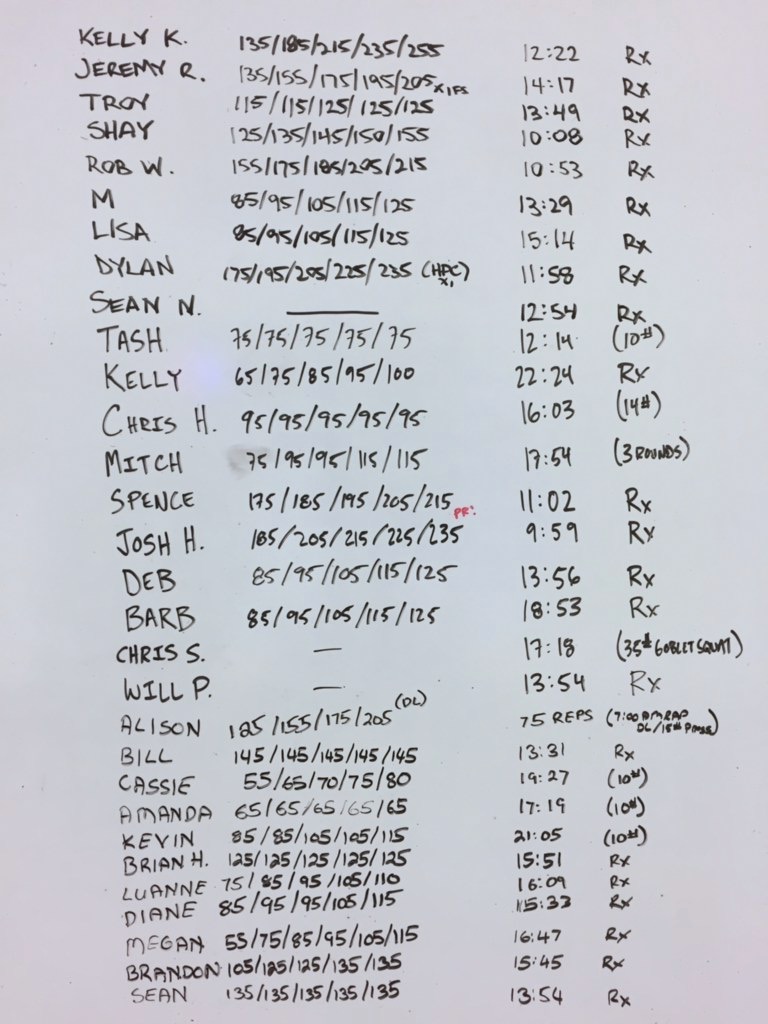 KELLY K. 135/185/215/235/255 12:22 Rx
JEREMY R. 135/155/175/195/205 x1FS 14:17 Rx
TROY 115/115/125/125/125 13:49 Rx
SHAY 125/135/145/150/155 10:08 Rx
ROB W. 155/175/185/205/215 10:53 Rx
M 85/95/105/115/125 13:29 Rx
LISA 85/95/105/115/125 15:14 Rx
DYLAN 175/195/205/225/235 (HPC) x1 11:58 Rx
SEAN N. — 12:54 Rx
TASH 75/75/75/75/75 12:14 (10#)
KELLY 65/75/85/95/100 22:24 Rx
CHRIS H. 95/95/95/95/95 16:03 (14#)
MITCH 75/95/95/115/115 17:54 (3 ROUNDS)
SPENCE 175/185/195/205/215 PR! 11:02 Rx
JOSH H. 185/205/215/225/235 9:59 Rx
DEB 85/95/105/115/125 13:56 Rx
BARB 85/95/105/115/125 18:53 Rx
CHRIS S. — 17:18 (35# GOBLET SQUAT)
WILL P. — 13:54 Rx
ALISON 185/155/175/205 (DL) 75 REPS (7:00 AMRAP DL/15# PRESS)
BILL 145/145/145/145/145 13:31 Rx
CASSIE 55/65/70/75/80 19:27 (10#)
AMANDA 65/65/65/65/65 17:19 (10#)
KEVIN 85/85/105/105/115 21:05 (10#)
BRIAN H. 125/125/125/125/125 15:51 Rx
LUANNE 75/85/95/105/110 16:09 Rx
DIANE 85/95/95/105/115 15:33 Rx
MEGAN 55/75/85/95/105/115 16:47 Rx
BRANDON 105/125/125/135/135 15:45 Rx
SEAN 135/135/135/135/135 13:54 Rx